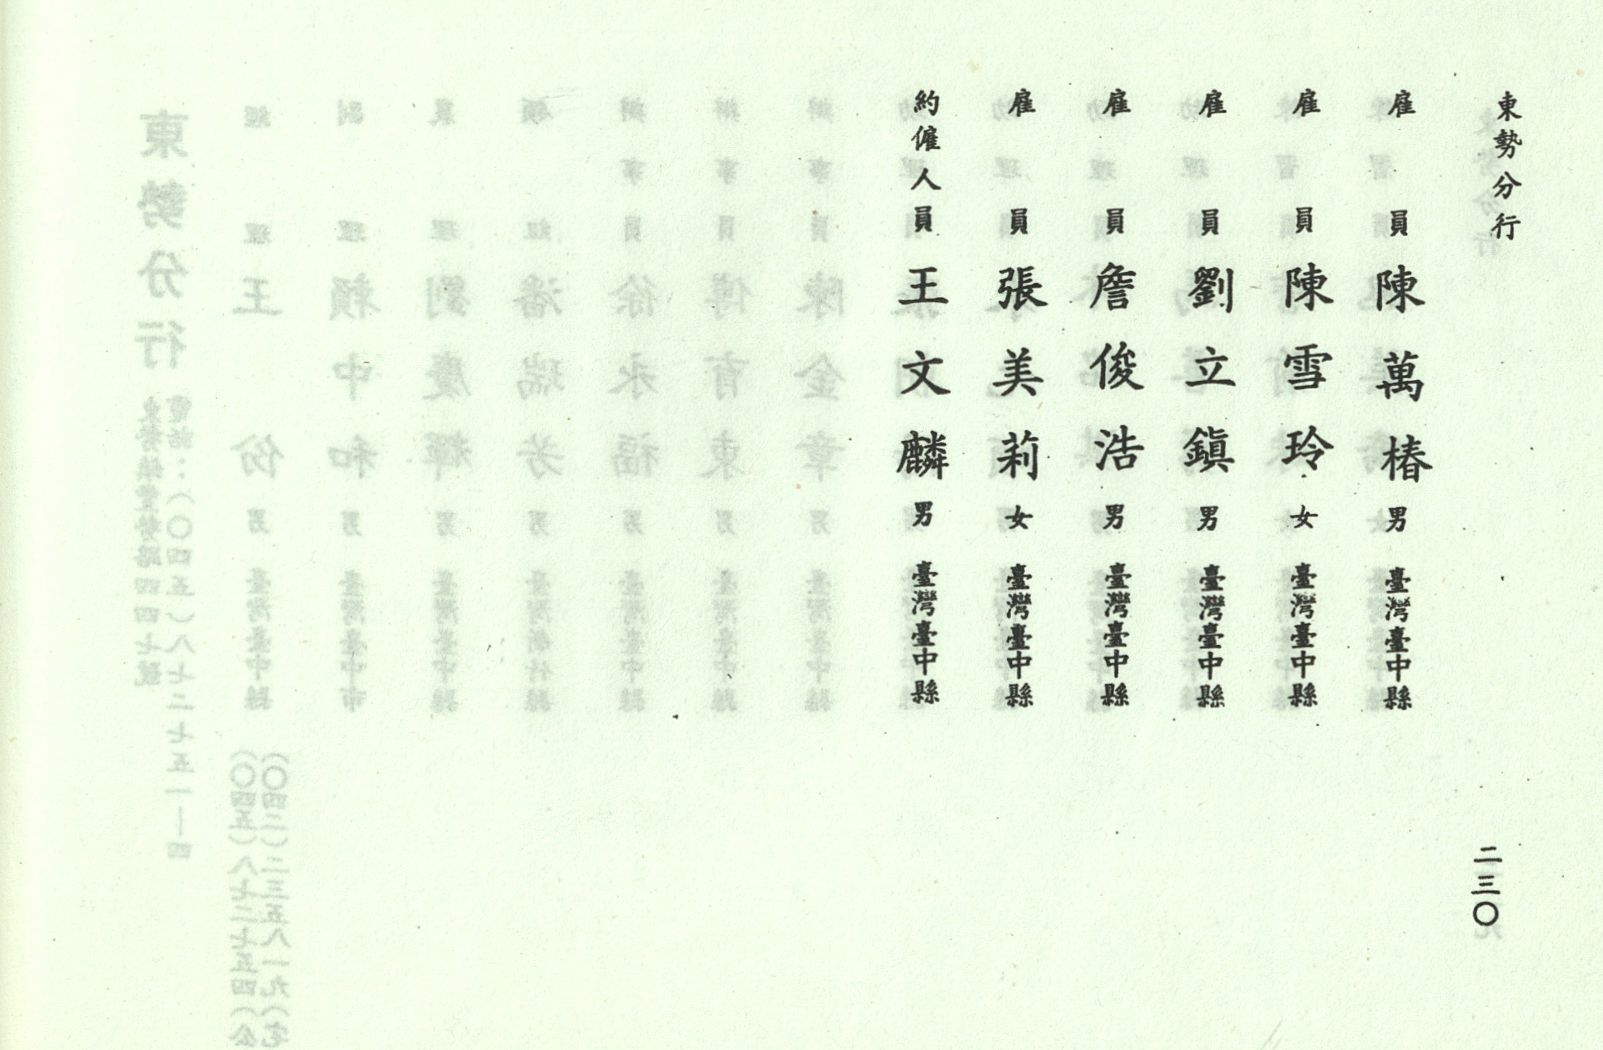 東勢分行
雇員 陳萬椿 男 臺灣臺中縣
雇員 陳雪玲 女 臺灣臺中縣
雇員 劉立鎮 男 臺灣臺中縣
雇員 詹俊浩 男 臺灣臺中縣
雇員 張美莉 女 臺灣臺中縣
約僱人員 王文麟 男 臺灣臺中縣
二三〇